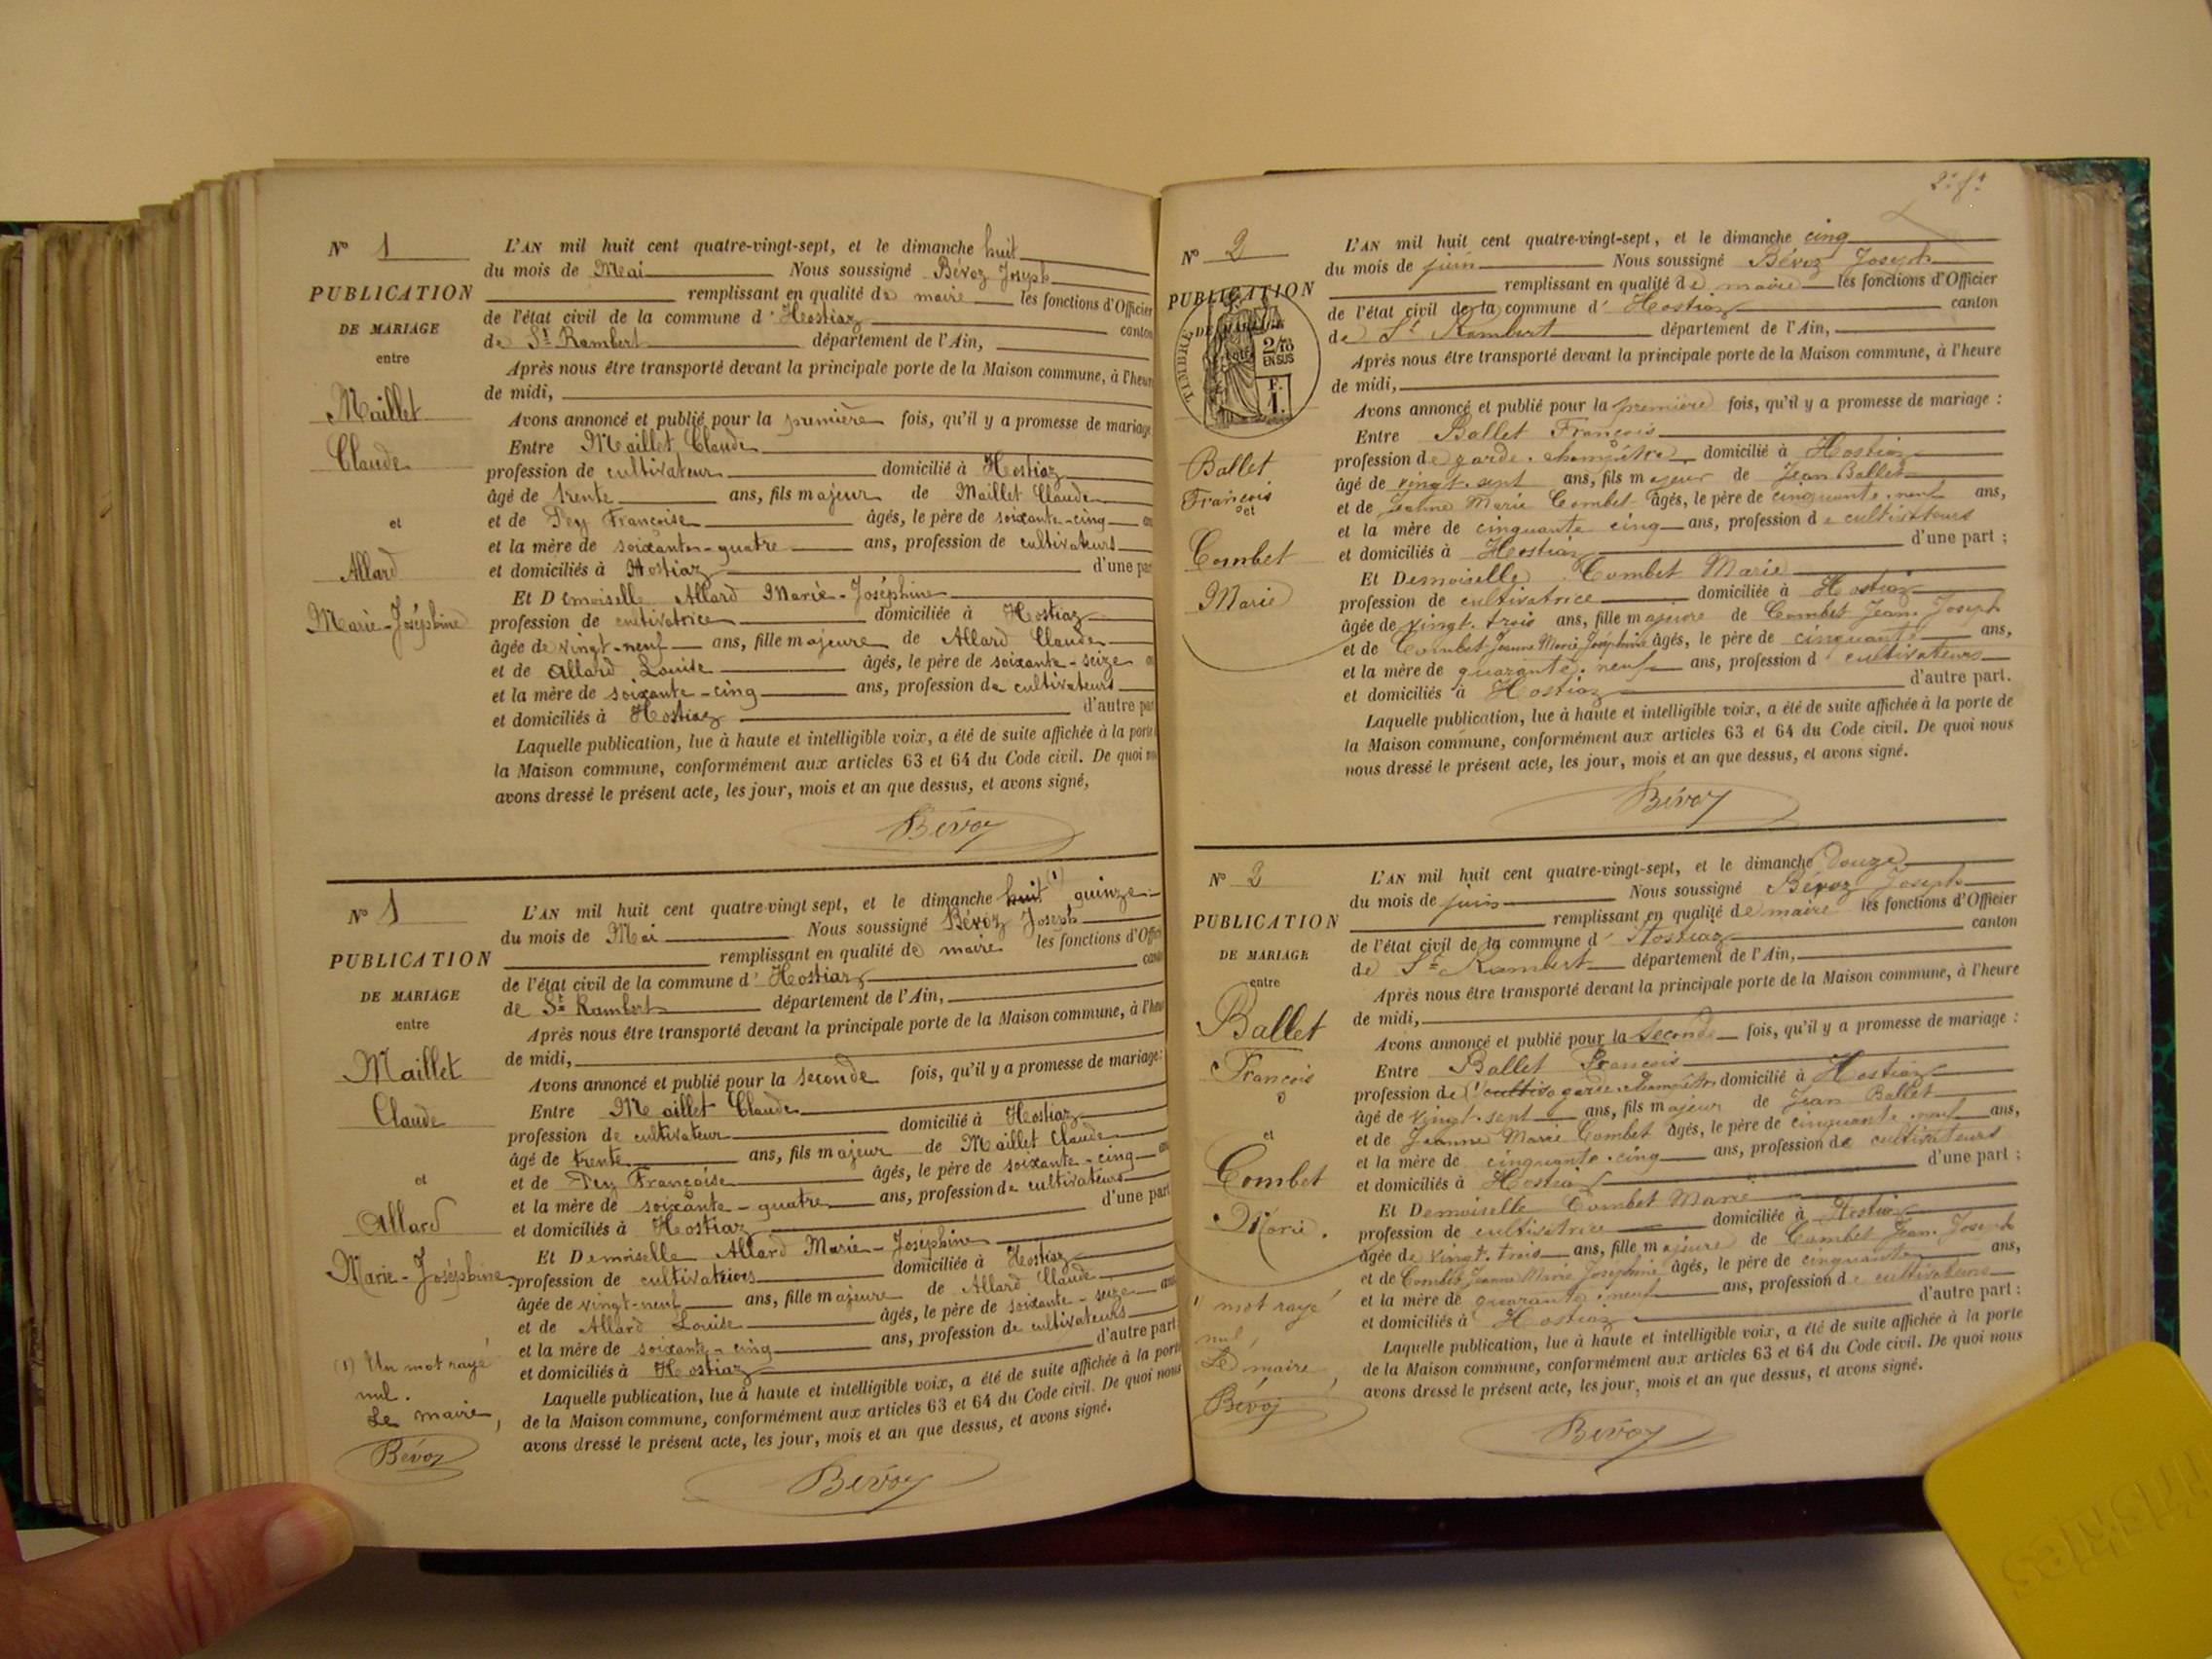 N° 1
PUBLICATION
DE MARIAGE
entre
Maillet
Claude
et
Allard
Marie-Joséphine
L'AN mil huit cent quatre-vingt-sept, et le dimanche huit
du mois de Mai Nous soussigné Bévoz Joseph
remplissant en qualité de maire les fonctions d'Officier
de l'état civil de la commune d'Hostiaz canton
de St Rambert département de l'Ain,
Après nous être transporté devant la principale porte de la Maison commune, à l'heur
de midi,
Avons annoncé et publié pour la première fois, qu'il y a promesse de mariage
Entre Maillet Claude
profession de cultivateur domicilié à Hostiaz
âgé de trente ans, fils majeur de Maillet Claude
et de Pey Françoise âgés, le père de soixante-cinq
et la mère de soixante-quatre ans, profession de cultivateurs
et domiciliés à Hostiaz d'une pa
Et Demoiselle Allard Marie-Joséphine
profession de cultivatrice domiciliée à Hostiaz
âgée de vingt-neuf ans, fille majeure de Allard Claude
et de Allard Louise âgés, le père de soixante-seize
et la mère de soixante-cinq ans, profession de cultivateurs
et domiciliés à Hostiaz d'autre pa
Laquelle publication, lue à haute et intelligible voix, a été de suite affichée à la porte
la Maison commune, conformément aux articles 63 et 64 du Code civil. De quoi
avons dressé le présent acte, les jour, mois et an que dessus, et avons signé,
Bévoz
N° 1
PUBLICATION
DE MARIAGE
entre
Maillet
Claude
et
Allard
Marie-Joséphine
(1) Un mot rayé
nul.
Le maire,
Bévoz
L'AN mil huit cent quatre-vingt sept, et le dimanche huit (1) quinze
du mois de Mai Nous soussigné Bévoz Joseph
remplissant en qualité de maire les fonctions d'Offici
de l'état civil de la commune d'Hostiaz canto
de St Rambert département de l'Ain,
Après nous être transporté devant la principale porte de la Maison commune, à l'heu
de midi,
Avons annoncé et publié pour la seconde fois, qu'il y a promesse de mariage:
Entre Maillet Claude
profession de cultivateur domicilié à Hostiaz
âgé de trente ans, fils majeur de Maillet Claude
et de Pey Françoise âgés, le père de soixante-cinq
et la mère de soixante-quatre ans, profession de cultivateurs
et domiciliés à Hostiaz d'une part
Et Demoiselle Allard Marie-Joséphine
profession de cultivatrices domiciliée à Hostiaz
âgée de vingt-neuf ans, fille majeure de Allard Claude
et de Allard Louise âgés, le père de soixante-seize ans
et la mère de soixante-cinq ans, profession de cultivateurs
et domiciliés à Hostiaz d'autre part
Laquelle publication, lue à haute et intelligible voix, a été de suite affichée à la porte
de la Maison commune, conformément aux articles 63 et 64 du Code civil. De quoi nous
avons dressé le présent acte, les jour, mois et an que dessus, et avons signé.
Bévoz
N° 2
PUBLICATION
DE MARIAGE
TIMBRE
2/10
EN SUS
F.
1.
Ballet
François
et
Combet
Marie
L'AN mil huit cent quatre-vingt-sept, et le dimanche cinq
du mois de juin Nous soussigné Bévoz Joseph
remplissant en qualité de maire les fonctions d'Officier
de l'état civil de la commune d'Hostiaz canton
de St Rambert département de l'Ain,
Après nous être transporté devant la principale porte de la Maison commune, à l'heure
de midi,
Avons annoncé et publié pour la première fois, qu'il y a promesse de mariage :
Entre Ballet François
profession de garde-champêtre domicilié à Hostiaz
âgé de vingt-sept ans, fils majeur de Jean Ballet
et de Jeanne Marie Combet âgés, le père de cinquante-neuf ans,
et la mère de cinquante cinq ans, profession de cultivateurs
et domiciliés à Hostiaz d'une part ;
Et Demoiselle Combet Marie
profession de cultivatrice domiciliée à Hostiaz
âgée de vingt-trois ans, fille majeure de Combet Jean-Joseph
et de Combet Jeanne Marie Joséphine âgés, le père de cinquante ans,
et la mère de quarante-neuf ans, profession de cultivateurs
et domiciliés à Hostiaz d'autre part.
Laquelle publication, lue à haute et intelligible voix, a été de suite affichée à la porte de
la Maison commune, conformément aux articles 63 et 64 du Code civil. De quoi nous
nous dressé le présent acte, les jour, mois et an que dessus, et avons signé.
Bévoz
N° 2
PUBLICATION
DE MARIAGE
entre
Ballet
François
et
Combet
Marie.
1) mot rayé
nul,
Le maire,
Bévoz
L'AN mil huit cent quatre-vingt-sept, et le dimanche douze
du mois de juin Nous soussigné Bévoz Joseph
remplissant en qualité de maire les fonctions d'Officier
de l'état civil de la commune d'Hostiaz canton
de St Rambert département de l'Ain,
Après nous être transporté devant la principale porte de la Maison commune, à l'heure
de midi,
Avons annoncé et publié pour la seconde fois, qu'il y a promesse de mariage :
Entre Ballet François
profession de (1 cultiva garde-champêtre domicilié à Hostiaz
âgé de vingt-sept ans, fils majeur de Jean Ballet
et de Jeanne Marie Combet âgés, le père de cinquante-neuf ans,
et la mère de cinquante-cinq ans, profession de cultivateurs
et domiciliés à Hostiaz d'une part ;
Et Demoiselle Combet Marie
profession de cultivatrice domiciliée à Hostiaz
âgée de vingt-trois ans, fille majeure de Combet Jean-Joseph
et de Combet Jeanne Marie Joséphine âgés, le père de cinquante ans,
et la mère de quarante-neuf ans, profession de cultivateurs
et domiciliés à Hostiaz d'autre part ;
Laquelle publication, lue à haute et intelligible voix, a été de suite affichée à la porte
de la Maison commune, conformément aux articles 63 et 64 du Code civil. De quoi nous
avons dressé le présent acte, les jour, mois et an que dessus, et avons signé.
Bévoz